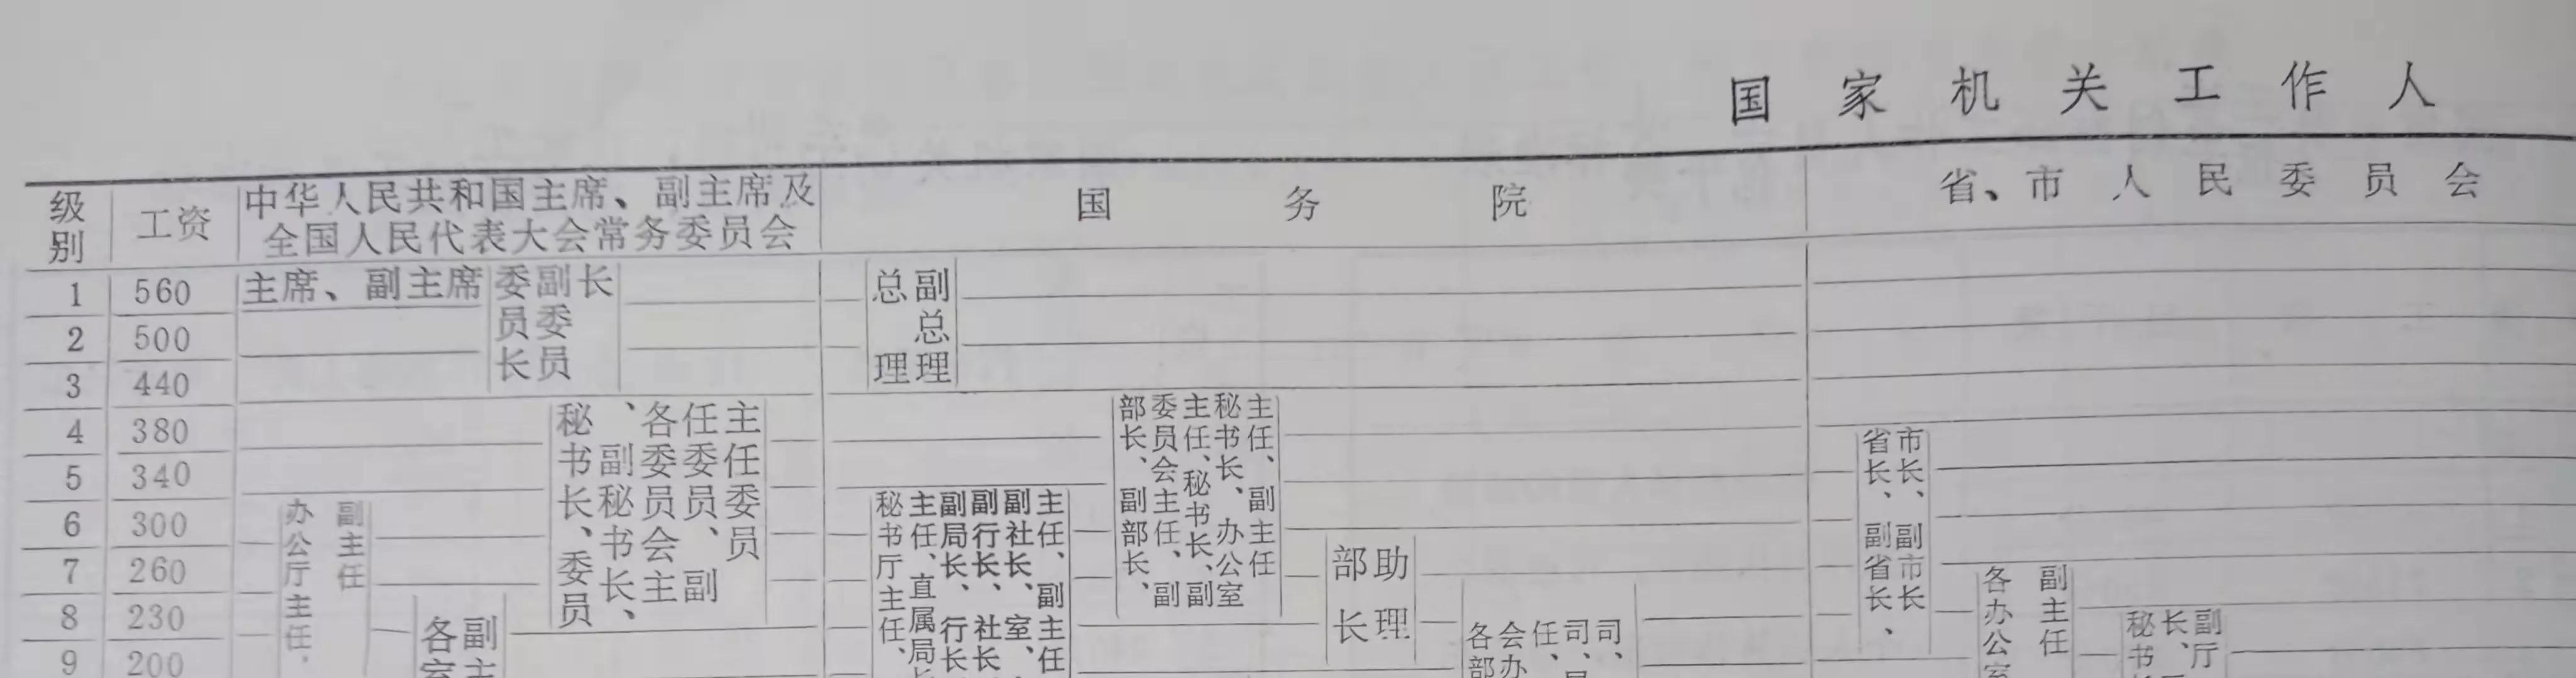 国家机关工作人
级别
工资
中华人民共和国主席、副主席及
全国人民代表大会常务委员会
国务院
省、市人民委员会
1 560
2 500
3 440
4 380
5 340
6 300
7 260
8 230
9 200
主席、副主席
委员长
副委员
长
秘书长、委员
、副秘书长、
各委员会主
任委员、副
主任委员
办公厅主任、
副主任
各室
副主
总理
副总理
部长、副部长、
委员会主任、副
主任、秘书长、副
秘书长、办公室
主任、副主任
秘书厅主任、
主任、直属局长
副局长、行长
副行长、社长
副社长、室
主任、副主任
部长
助理
各部
会办
任、
司、局
司、
省长、副省长、
市长、副市长
各办公室
副主任
秘书
长、
副厅